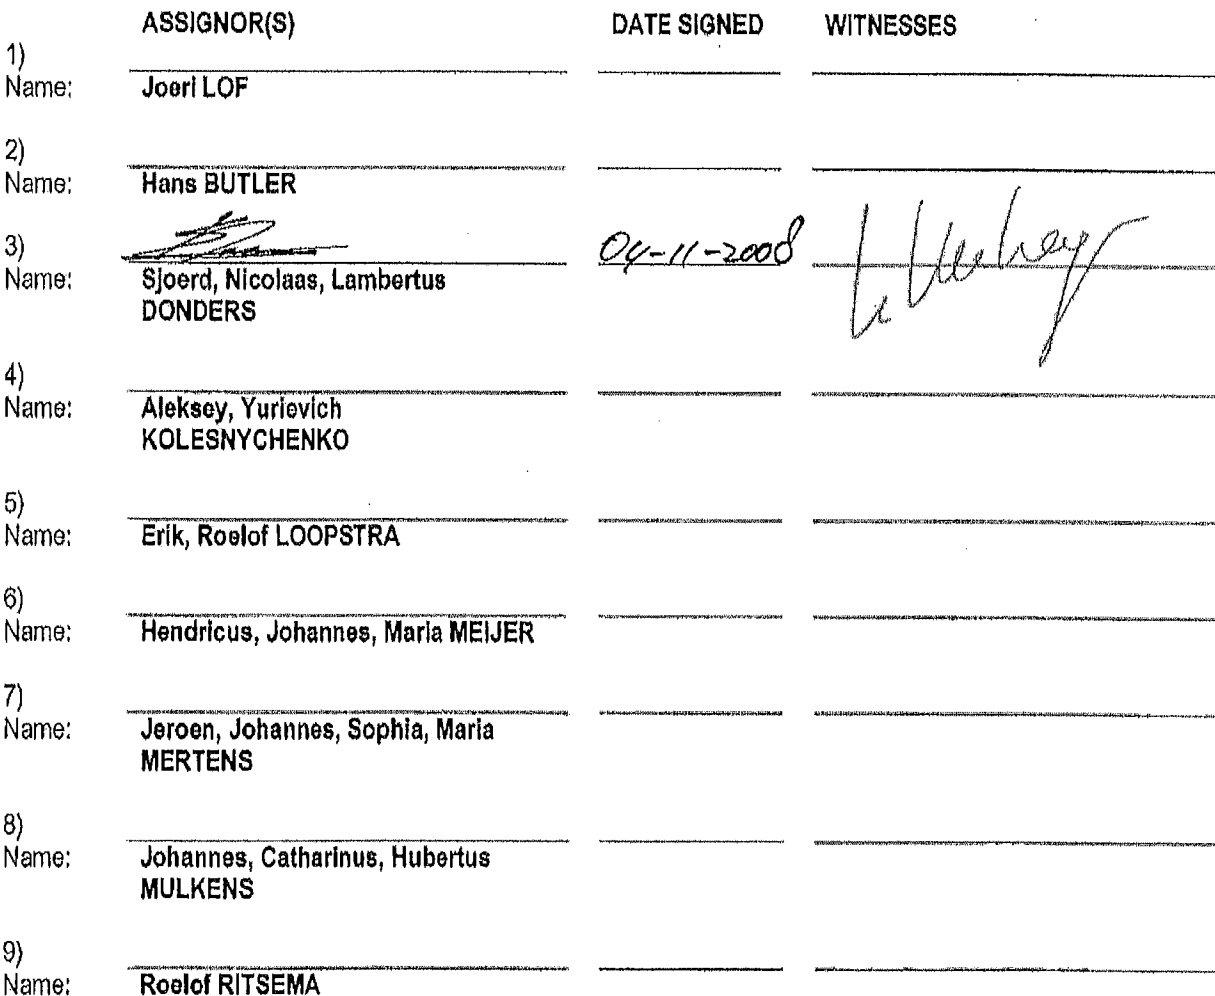 ASSIGNOR(S) DATE SIGNED WITNESSES
1)
Name: Joeri LOF
2)
Name: Hans BUTLER
3) 04-11-2008
Name: Sjoerd, Nicolaas, Lambertus
DONDERS
4)
Name: Aleksey, Yurievich
KOLESNYCHENKO
5)
Name: Erik, Roelof LOOPSTRA
6)
Name: Hendricus, Johannes, Maria MEIJER
7)
Name: Jeroen, Johannes, Sophia, Maria
MERTENS
8)
Name: Johannes, Catharinus, Hubertus
MULKENS
9)
Name: Roelof RITSEMA